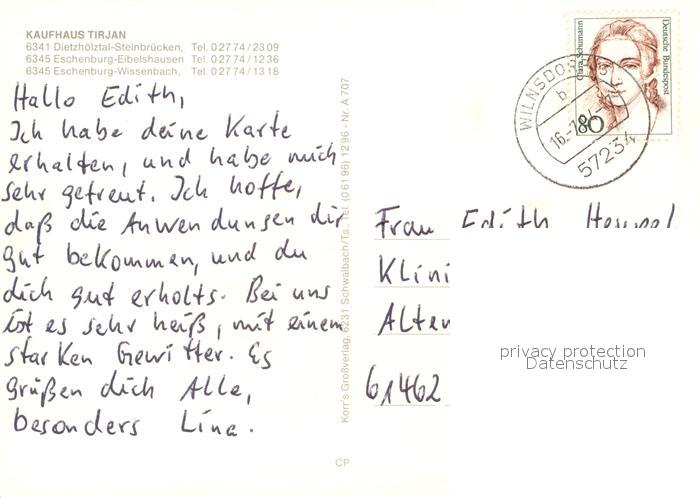 KAUFHAUS TIRJAN
6341 Dietzhölztal-Steinbrücken, Tel. 0 27 74 / 23 09
6345 Eschenburg-Eibelshausen Tel. 0 27 74 / 12 36
6345 Eschenburg-Wissenbach, Tel. 0 27 74 / 13 18
Hallo Edith,
Ich habe deine Karte
erhalten, und habe mich
sehr gefreut. Ich hoffe,
daß die Anwendungen dir
gut bekommen, und du
dich gut erholts. Bei uns
ist es sehr heiß, mit einem
starken Gewitter. Es
grüßen dich Alle,
besonders Lina.
Korr's Großverlag, 6231 Schwalbach/Ts. Tel. (06196) 1296 - Nr. A 707
CP
Deutsche Bundespost
80
WILNSDORF
b
57234
Frau Edith
Klini
Alten
61462
privacy protection
Datenschutz